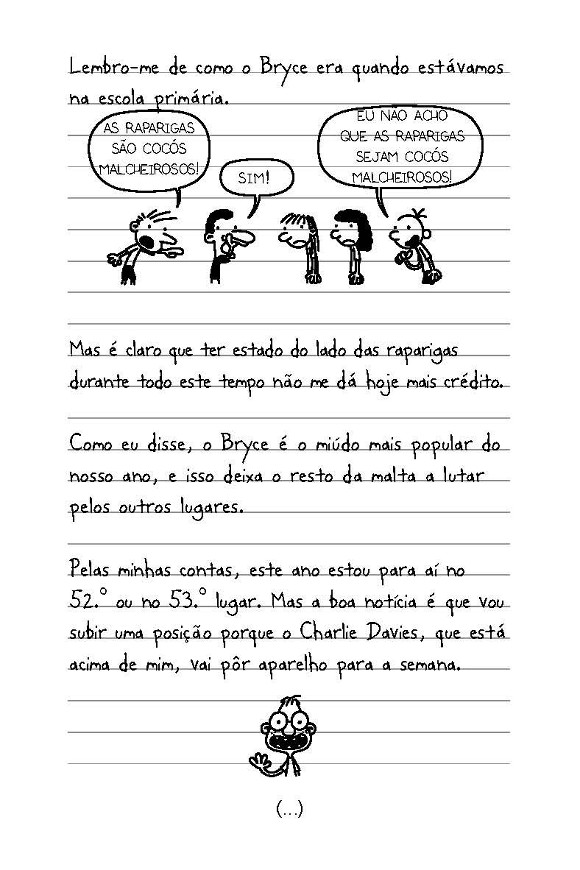 Lembro-me de como o Bryce era quando estávamos
na escola primária.
AS RAPARIGAS
SÃO COCÓS
MALCHEIROSOS!
SIM!
EU NÃO ACHO
QUE AS RAPARIGAS
SEJAM COCÓS
MALCHEIROSOS!
Mas é claro que ter estado do lado das raparigas
durante todo este tempo não me dá hoje mais crédito.
Como eu disse, o Bryce é o miúdo mais popular do
nosso ano, e isso deixa o resto da malta a lutar
pelos outros lugares.
Pelas minhas contas, este ano estou para aí no
52.º ou no 53.º lugar. Mas a boa notícia é que vou
subir uma posição porque o Charlie Davies, que está
acima de mim, vai pôr aparelho para a semana.
(...)